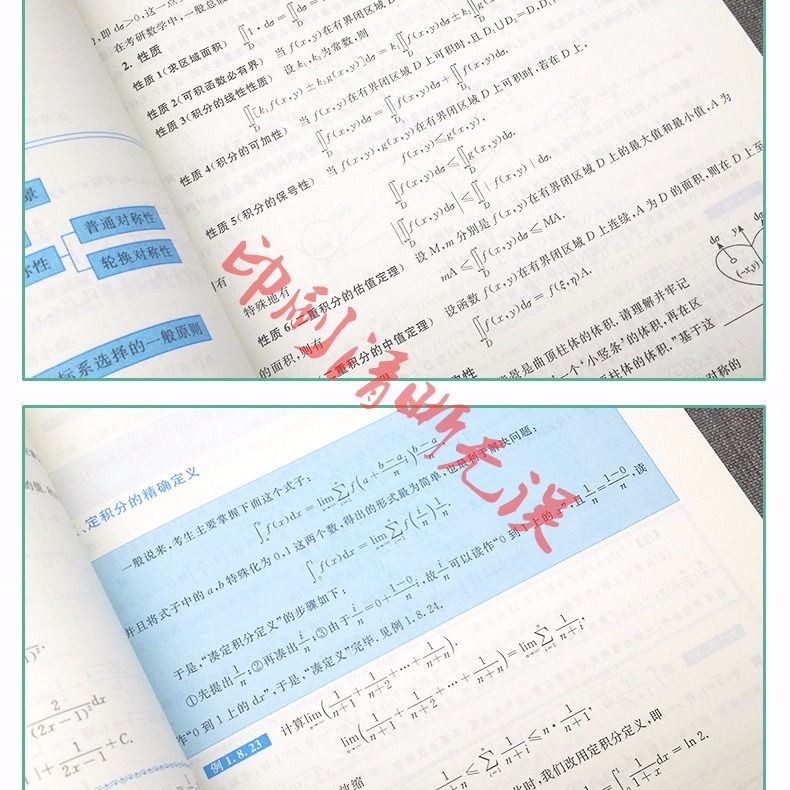 ,即 dσ>0,这一点
在考研数学中,一般总假
2. 性质
性质 1(求区域面积) ∬_D 1·dσ=∬_D dσ=
性质 2(可积函数必有界) 当 f(x,y)在有界闭区域 D
性质 3(积分的线性性质) 设 k₁,k₂为常数,则
∬_D[k₁f(x,y)±k₂g(x,y)]dσ=k₁∬_D f(x,y)dσ±k₂∬_D g(
性质 4(积分的可加性) 当 f(x,y)在有界闭区域 D 上可积时,且 D₁∪D₂=D,D₁
∬_D f(x,y)dσ=∬_D₁ f(x,y)dσ+∬_D₂ f(x,y)dσ.
性质 5(积分的保号性) 当 f(x,y),g(x,y)在有界闭区域 D 上可积时,若在 D 上,
f(x,y)≤g(x,y),
有 ∬_D f(x,y)dσ≤∬_D g(x,y)dσ.
特殊地有 |∬_D f(x,y)dσ|≤∬_D|f(x,y)|dσ.
性质 6(二重积分的估值定理) 设 M,m 分别是 f(x,y)在有界闭区域 D 上的最大值和最小值,A 为
的面积,则有 mA≤∬_D f(x,y)dσ≤MA.
二重积分的中值定理) 设函数 f(x,y)在有界闭区域 D 上连续,A 为 D 的面积,则在 D 上至
∬_D f(x,y)dσ=f(ξ,η)A.
景是曲顶柱体的体积.请理解并牢记
一个'小竖条'的体积,再在区
柱体的体积."基于这
对称的
dσ
y
dσ
(-x,y)
景
普通对称性
性
轮换对称性
标系选择的一般原则
印刷清晰无误
、定积分的精确定义
一般说来,考生主要掌握下面这个式子:
∫_a^b f(x)dx=lim_{n→∞}∑_{i=1}^n f(a+(b-a)/n i)(b-a)/n,
并且将式子中的 a,b 特殊化为 0,1 这两个数,得出的形式最为简单,也最利于解决问题:
∫_0^1 f(x)dx=lim_{n→∞}∑_{i=1}^n f(i/n)1/n.
于是,"凑定积分定义"的步骤如下:
①先提出1/n;②再凑出i/n;③由于i/n=0+(1-0)/n i,故i/n可以读作"0 到 1 上的 x",且1/n=(1-0)/n,读
作"0 到 1 上的 dx",于是,"凑定义"完毕.见例 1.8.24.
例 1.8.23 计算lim_{n→∞}(1/(n+1)+1/(n+2)+…+1/(n+n)).
lim_{n→∞}(1/(n+1)+1/(n+2)+…+1/(n+n))=lim_{n→∞}∑_{i=1}^n 1/(n+i),
放缩 ≤∑_{i=1}^n 1/(n+i)≤n·1/(n+1),
此时,我们改用定积分定义,即
1/(1+x)dx=ln 2.
2/(2x-1)²dx
|+1/(2x-1)+C.